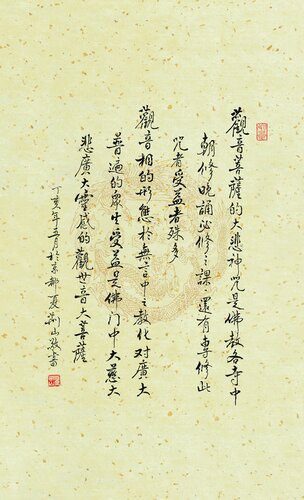 觀音菩薩的大悲神咒是佛教各寺中
朝修晚誦必修之課還有專修此
咒者受益者殊多
觀音相的形態於無言中之教化对廣大
普遍的眾生受益是佛门中大慈大
悲廣大靈感的觀世音大菩薩
丁亥年五月於京都夏荊山敬書